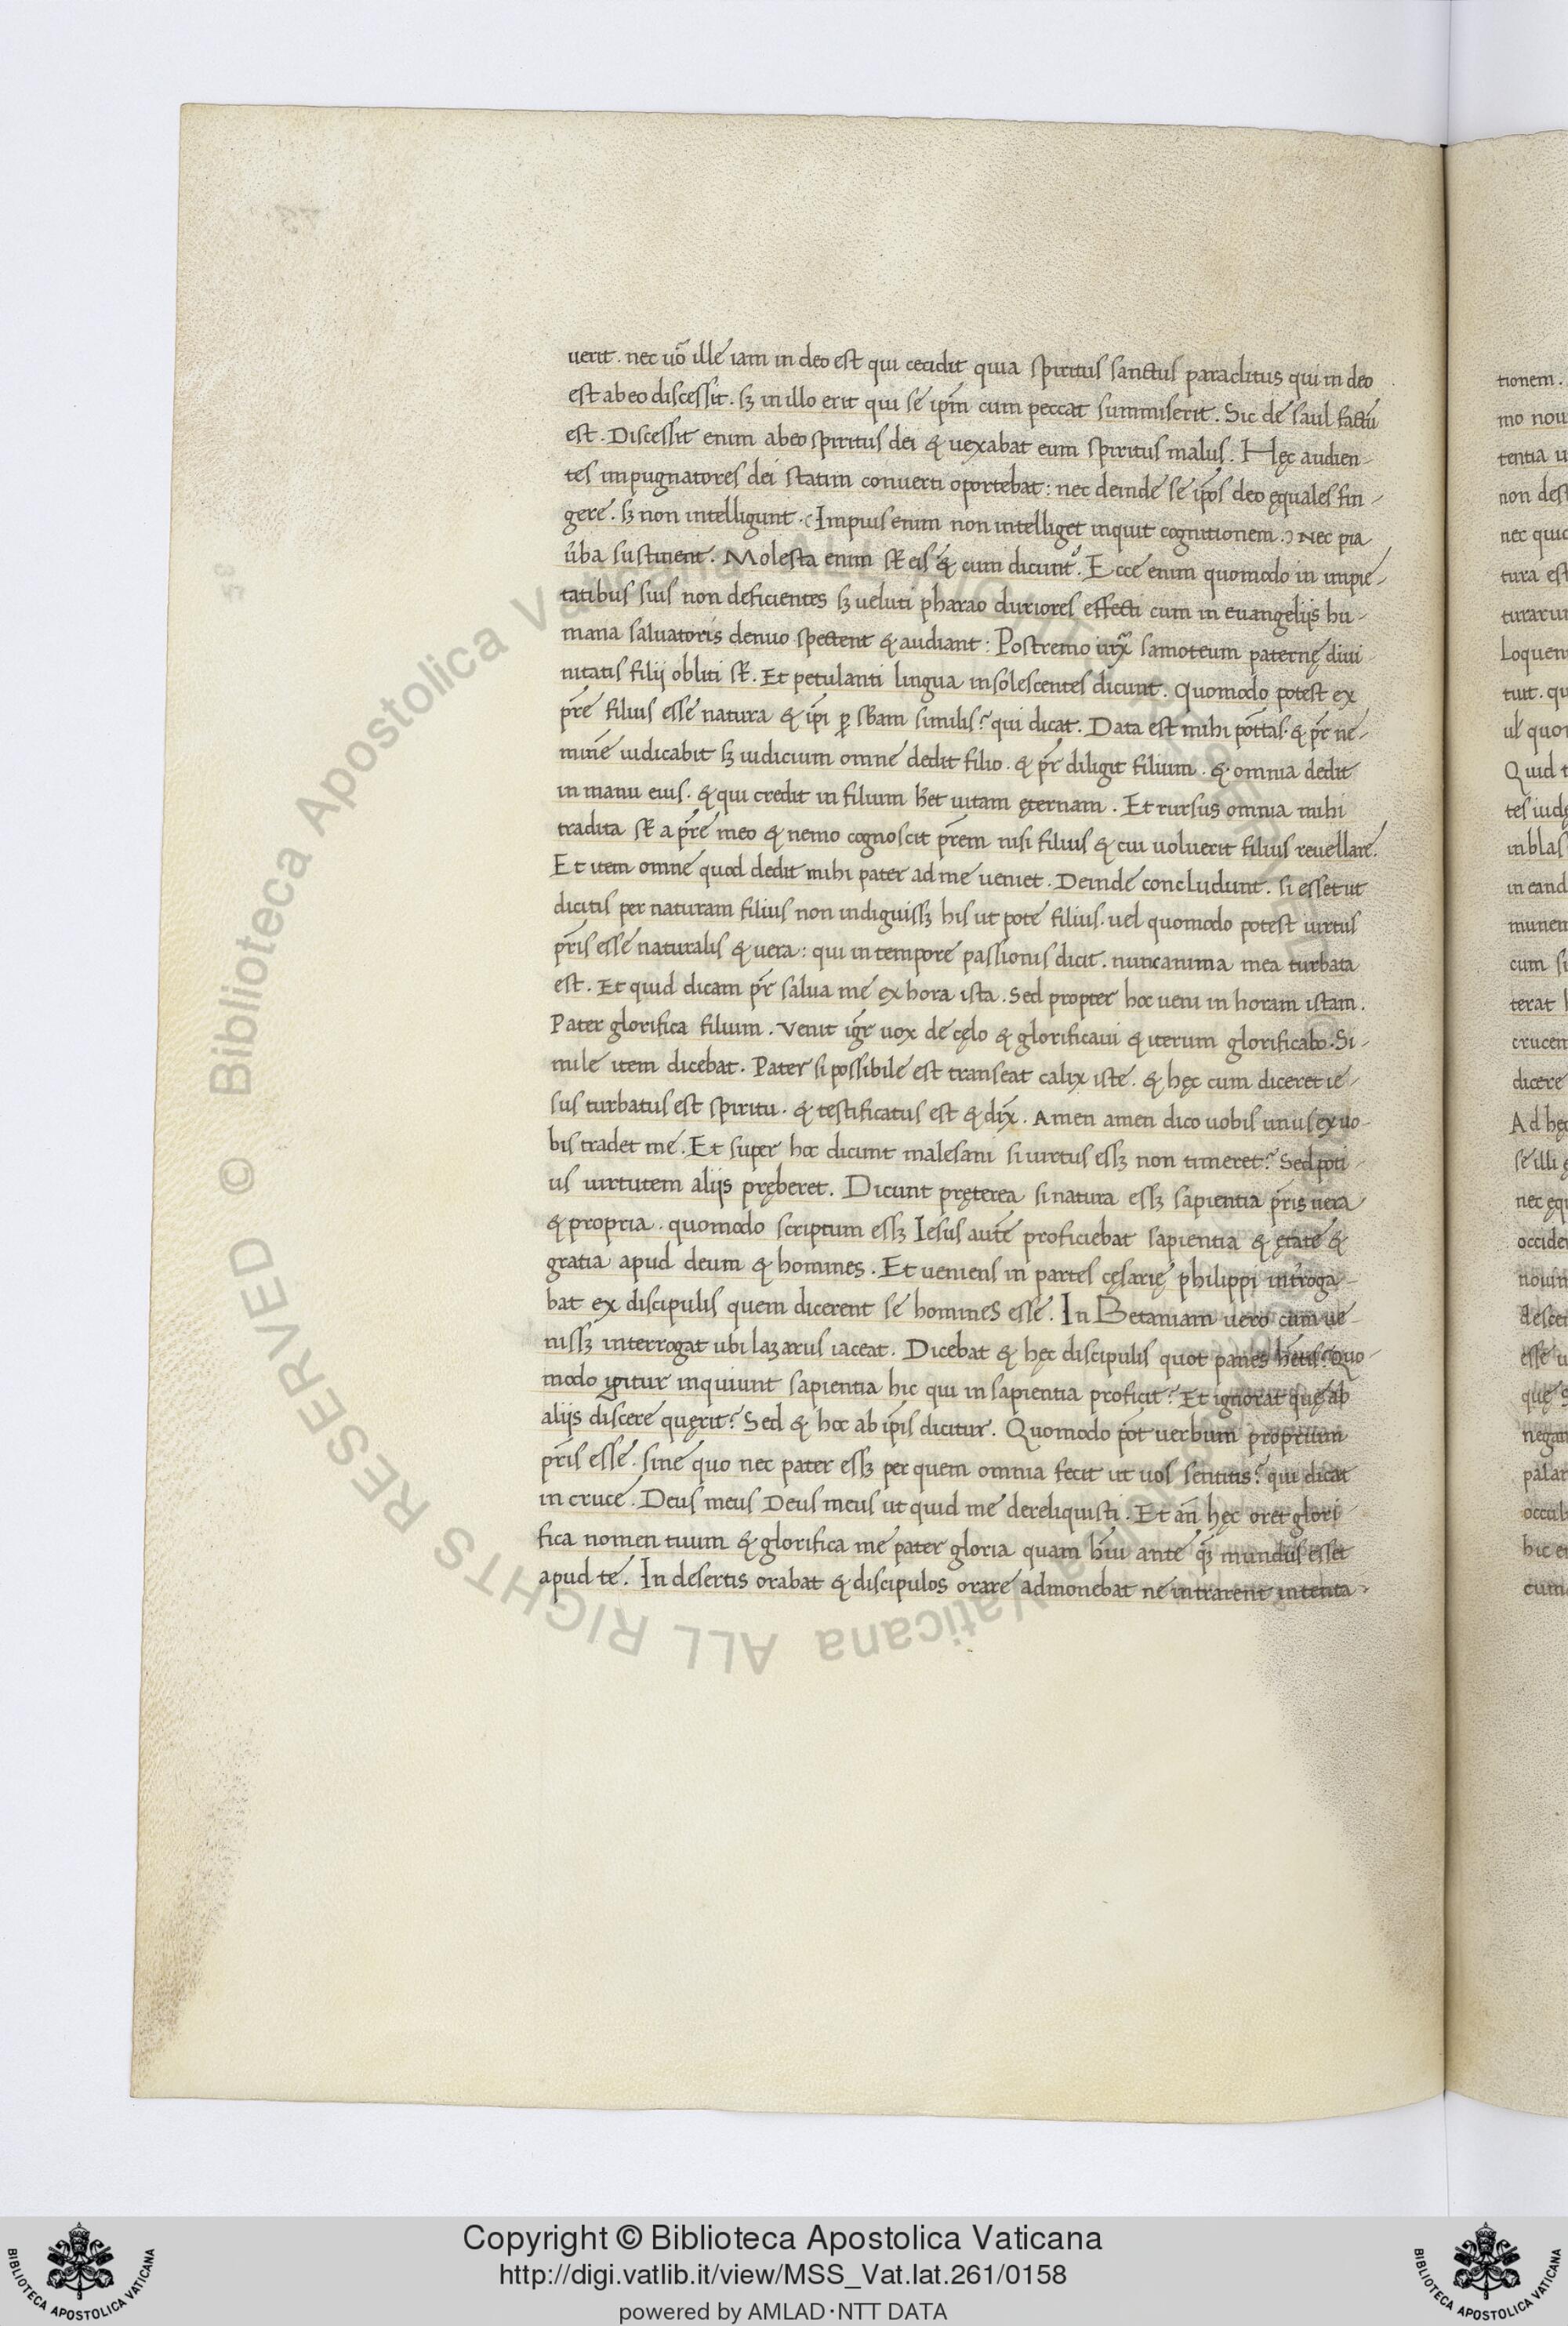 uerit. nec uo᷑ ille iam in deo est qui cecidit quia spiritus sanctus paraclitus qui in deo
est ab eo discessit. sꝫ in illo erit qui se ip̄m cum peccat summiserit. Sic de saul factū
est. Discessit enim ab eo spiritus dei & uexabat eum spiritus malus. Hęc audien-
tes impugnatores dei statim conuerti oportebat: nec deinde se ip̄os deo ęquales fin-
gere. sꝫ non intelligunt. (Impius enim non intelliget inquit cognitionem.) Nec pia
ūba sustinent. Molesta enim st̄ eis & cum dicunt᷑. Ecce enim quomodo in impie-
tatibus suis non deficientes sꝫ ueluti pharao duriores effecti cum in euangelijs hu-
mana saluatoris denuo spectent & audiant: Postremo samoteum paternę diui
nitatis filij obliti st̄. Et petulanti lingua insolescentes dicunt. Quomodo potest ex
pr̄e filius esse natura & ip̄i ꝑ sb̄am similis? qui dicat. Data est mihi pōtas. & pr̄ ne-
mine iudicabit sꝫ iudicium omne dedit filio. & pr̄ diligit filium. & omnia dedit
in manu eius. & qui credit in filium h̄et uitam ęternam. Et rursus omnia mihi
tradita st̄ a pr̄e meo & nemo cognoscit pr̄em nisi filius & cui uoluerit filius reuellare.
Et item omne quod dedit mihi pater ad me ueniet. Deinde concludunt. si esset ut
dicitis per naturam filius non indiguissꝫ his ut pote filius. uel quomodo potest uirtus
pr̄is esse naturalis & uera: qui in tempore passionis dicit. nunc anima mea turbata
est. Et quid dicam pr̄ salua me ex hora ista. Sed propter hoc ueni in horam istam.
Pater glorifica filium. Venit igr̄ uox de cęlo & glorificaui & iterum glorificabo. Si-
mile item dicebat. Pater si possibile est transeat calix iste. & hęc cum diceret ie-
sus turbatus est spiritu. & testificatus est & dix̄. Amen amen dico uobis unus ex uo-
bis tradet me. Et super hoc dicunt malesani si uirtus essꝫ non timeret? Sed poti-
us uirtutem alijs pręberet. Dicunt pręterea si natura essꝫ sapientia pr̄is uera
& propria. quomodo scriptum essꝫ Iesus autē proficiebat sapientia & ętate &
gratia apud deum & homines. Et ueniens in partes cęsarię philippi int̄roga-
bat ex discipulis quem dicerent se homines esse. In Betaniam uero cum ue-
nissꝫ interrogat ubi lazarus iaceat. Dicebat & hęc discipulis quot panes h̄etis? Quo-
modo igitur inquiunt sapientia hic qui in sapientia proficit? Et ignorat quę ab
alijs discere quęrit? Sed & hoc ab ip̄is dicitur. Quomodo pōt uerbum proprium
pr̄is esse. sine quo nec pater essꝫ per quem omnia fecit ut uos sentitis? qui dicat
in cruce. Deus meus Deus meus ut quid me dereliquisti. Et an̄ hęc oret glori
fica nomen tuum & glorifica me pater gloria quam h̄ui ante q̄ꝫ mundus esset
apud te. In desertis orabat & discipulos orare admonebat ne intrarent in tenta-
tionem.
mo nou
tentia u
non des
nec quic
tura est
turarum
Loquen
tuit. qu
ul̄ quo
Quid t
tes iudę
in blas
in eand
munem
cum si
terat
crucem
dicere
Ad hęc
se illi
nec equ
occide
nouin
descen
esse u
que
negan
palat
occub
hic e
cum
© Biblioteca Apostolica Vaticana ALL RIGHTS RESERVED
Copyright © Biblioteca Apostolica Vaticana
http://digi.vatlib.it/view/MSS_Vat.lat.261/0158
powered by AMLAD·NTT DATA
BIBLIOTECA APOSTOLICA VATICANA
BIBLIOTECA APOSTOLICA VATICANA